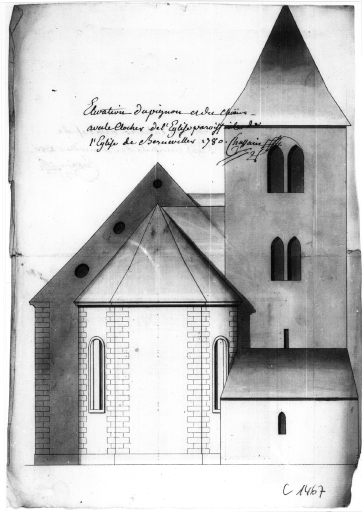 Elevation du pignon et du Chœur
avec le Clocher de l'Eglise paroissiale de
l'Eglise de Bernwiller 1780. Chassain
C 1467